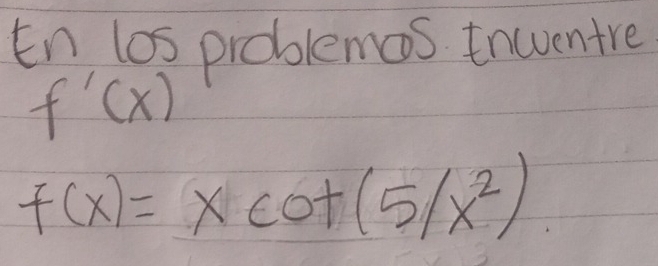 En los problemas. Encuentre
f'(x)
f(x)= x cot(5/x²).